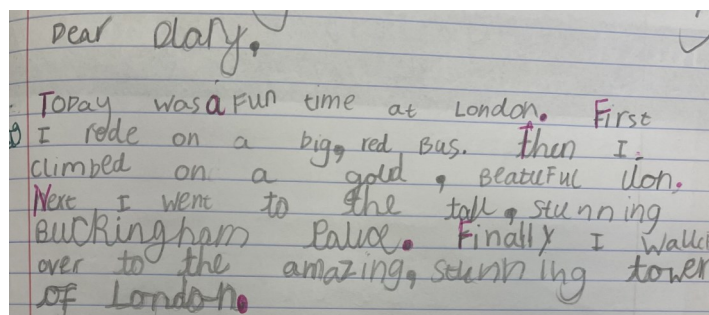 Dear Diary,
Today was a fun time at London. First
I rode on a big, red Bus. Then I
climbed on a gold, Beatuful lion.
Next I went to the tall, stunning
Buckingham Palice. Finally I walk
over to the amazing, stunning tower
of London.